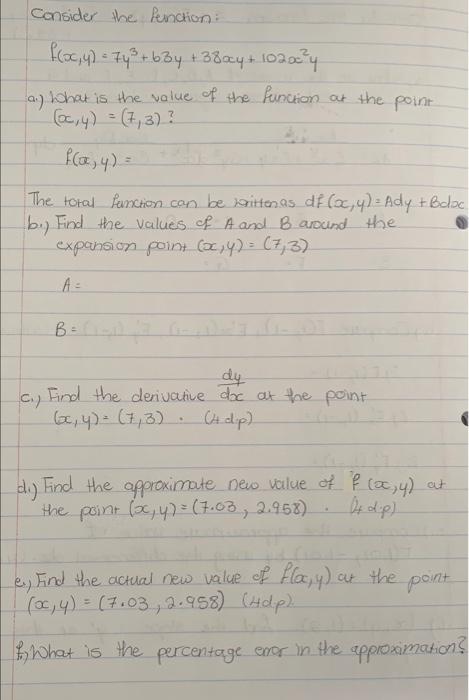 Consider the function:
f(x,y) = 7y³ + 63y + 38xy + 102x²y
a.) What is the value of the function at the point
(x,y) = (7,3)?
f(x,y) =
The total function can be written as df(x,y) = Ady + Bdx
b.) Find the values of A and B around the
expansion point (x,y) = (7,3)
A =
B =
c.) Find the derivative dy/dx at the point
(x,y) = (7,3) . (4dp)
d.) Find the approximate new value of f(x,y) at
the point (x,y) = (7.03, 2.958) . (4 d.p)
e.) Find the actual new value of f(x,y) at the point
(x,y) = (7.03, 2.958) (4dp)
f.) What is the percentage error in the approximation?